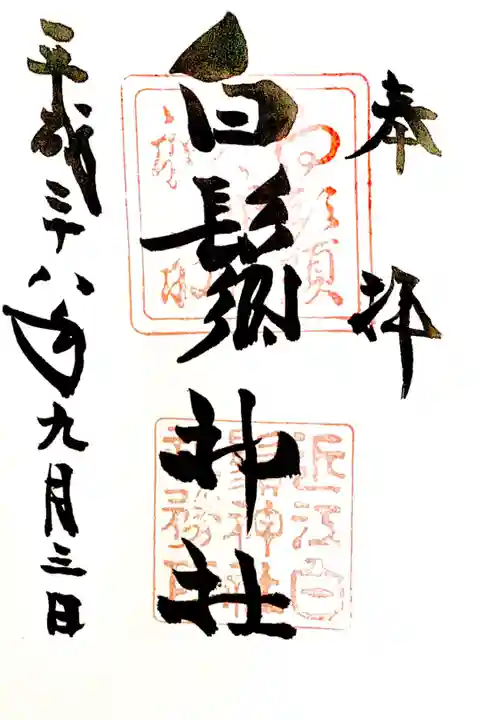 奉拝
白鬚神社
平成二十八年九月三日
近江白
鬚神社
社務所